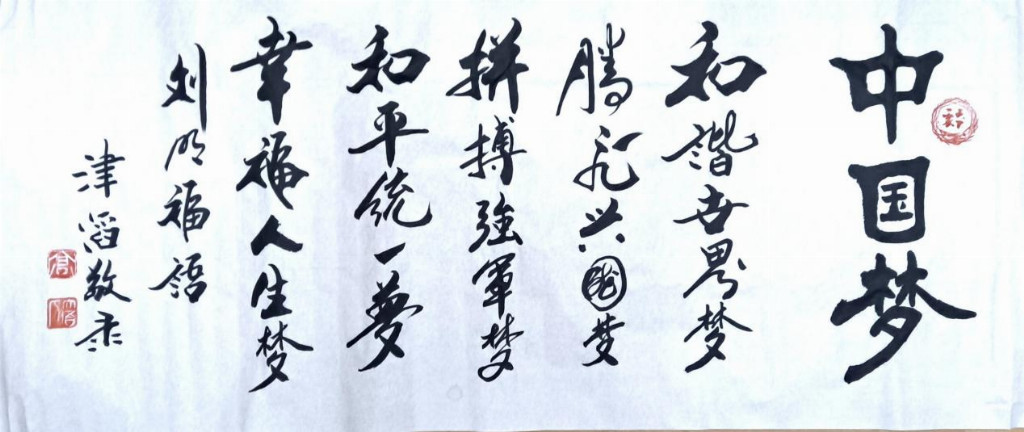 中国梦
和谐世界梦
腾飞兴國梦
拼搏強軍梦
和平统一夢
幸福人生梦
刘明福语
津滔敬录